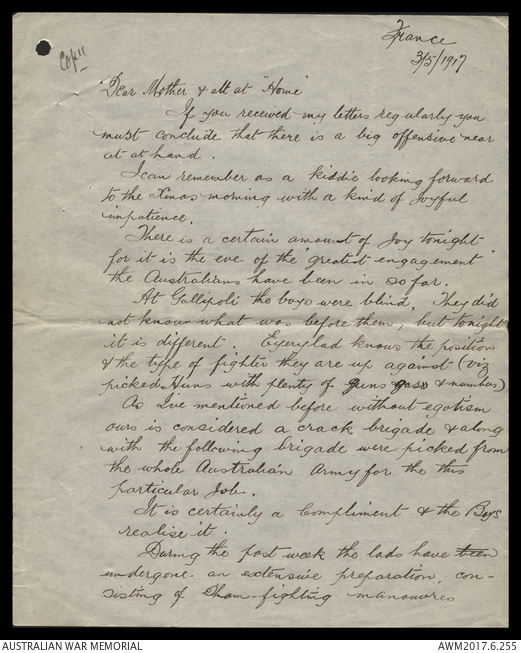 France
3/5/1917
Copy
"Dear Mother & all at "Home"
If you received my letters regularly you
must conclude that there is a big offensive near
at at hand.
I can remember as a kiddie looking forward
to the Xmas morning with a kind of Joyful
impatience.
There is a certain amount of Joy tonight
for it is the eve of the "greatest engagement"
the Australians have been in so far.
At Gallipoli the boys were blind. They did
not know what was before them, but tonight
it is different. Every lad knows the position
& the type of fighter they are up against (viz
picked Huns with plenty of guns gass & numbers)
As I've mentioned before without egotism
ours is considered a crack brigade & along
with the following brigade were picked from
the whole Australian Army for the this
particular Job.
It is certainly a Compliment & the Boys
realise it.
During the past week the lads have been
undergone an extensive preparation, con-
sisting of Sham-fighting manouvres
AUSTRALIAN WAR MEMORIAL
AWM2017.6.255